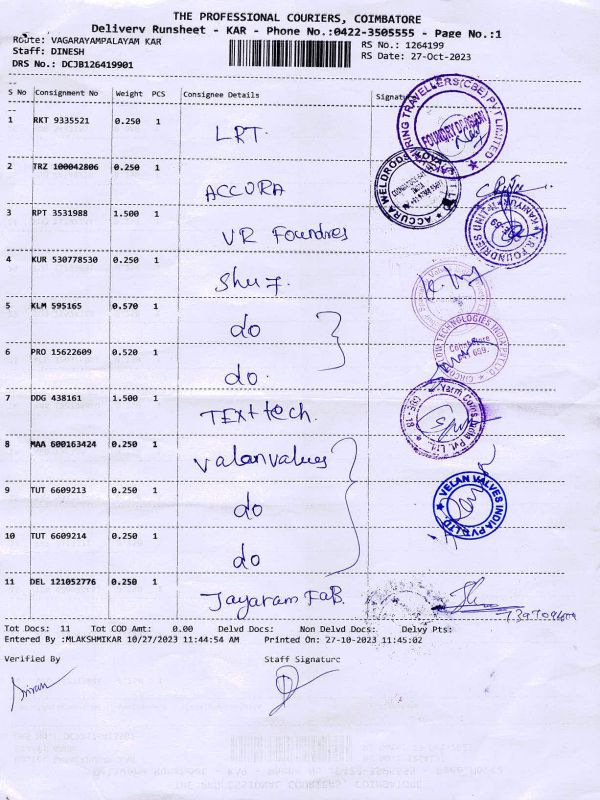 THE PROFESSIONAL COURIERS, COIMBATORE
Delivery Runsheet - KAR - Phone No.:0422-3505555 - Page No.:1
Route: VAGARAYAMPALAYAM KAR
RS No.: 1264199
Staff: DINESH
RS Date: 27-Oct-2023
DRS No.: DCJB126419901
S No Consignment No Weight PCS Consignee Details Signature
1 RKT 9335521 0.250 1 LRT.
2 TRZ 100042806 0.250 1 ACCURA
3 RPT 3531988 1.500 1 VR Foundres
4 KUR 530778530 0.250 1
5 KLM 595165 0.570 1 do
6 PRO 15622609 0.520 1 do.
7 DDG 438161 1.500 1 TEXttech.
8 MAA 600163424 0.250 1 valanvalues
9 TUT 6609213 0.250 1 do
10 TUT 6609214 0.250 1 do
11 DEL 121052776 0.250 1 Jayaram FaB.
TRAVELLERS(CBE) PVT LIMITED
FOUNDRY DIVISION
ACCURA WELDRODS
V.R. FOUNDRIES UNIT
TECHNOLOGIES INDIA PVT LTD
Yarm Coms India Pvt. Ltd.
VELAN VALVES INDIA PVT LTD
Tot Docs: 11 Tot COD Amt: 0.00 Delvd Docs: Non Delvd Docs: Delvy Pts:
Entered By :MLAKSHMIKAR 10/27/2023 11:44:54 AM Printed On: 27-10-2023 11:45:02
Verified By Staff Signature